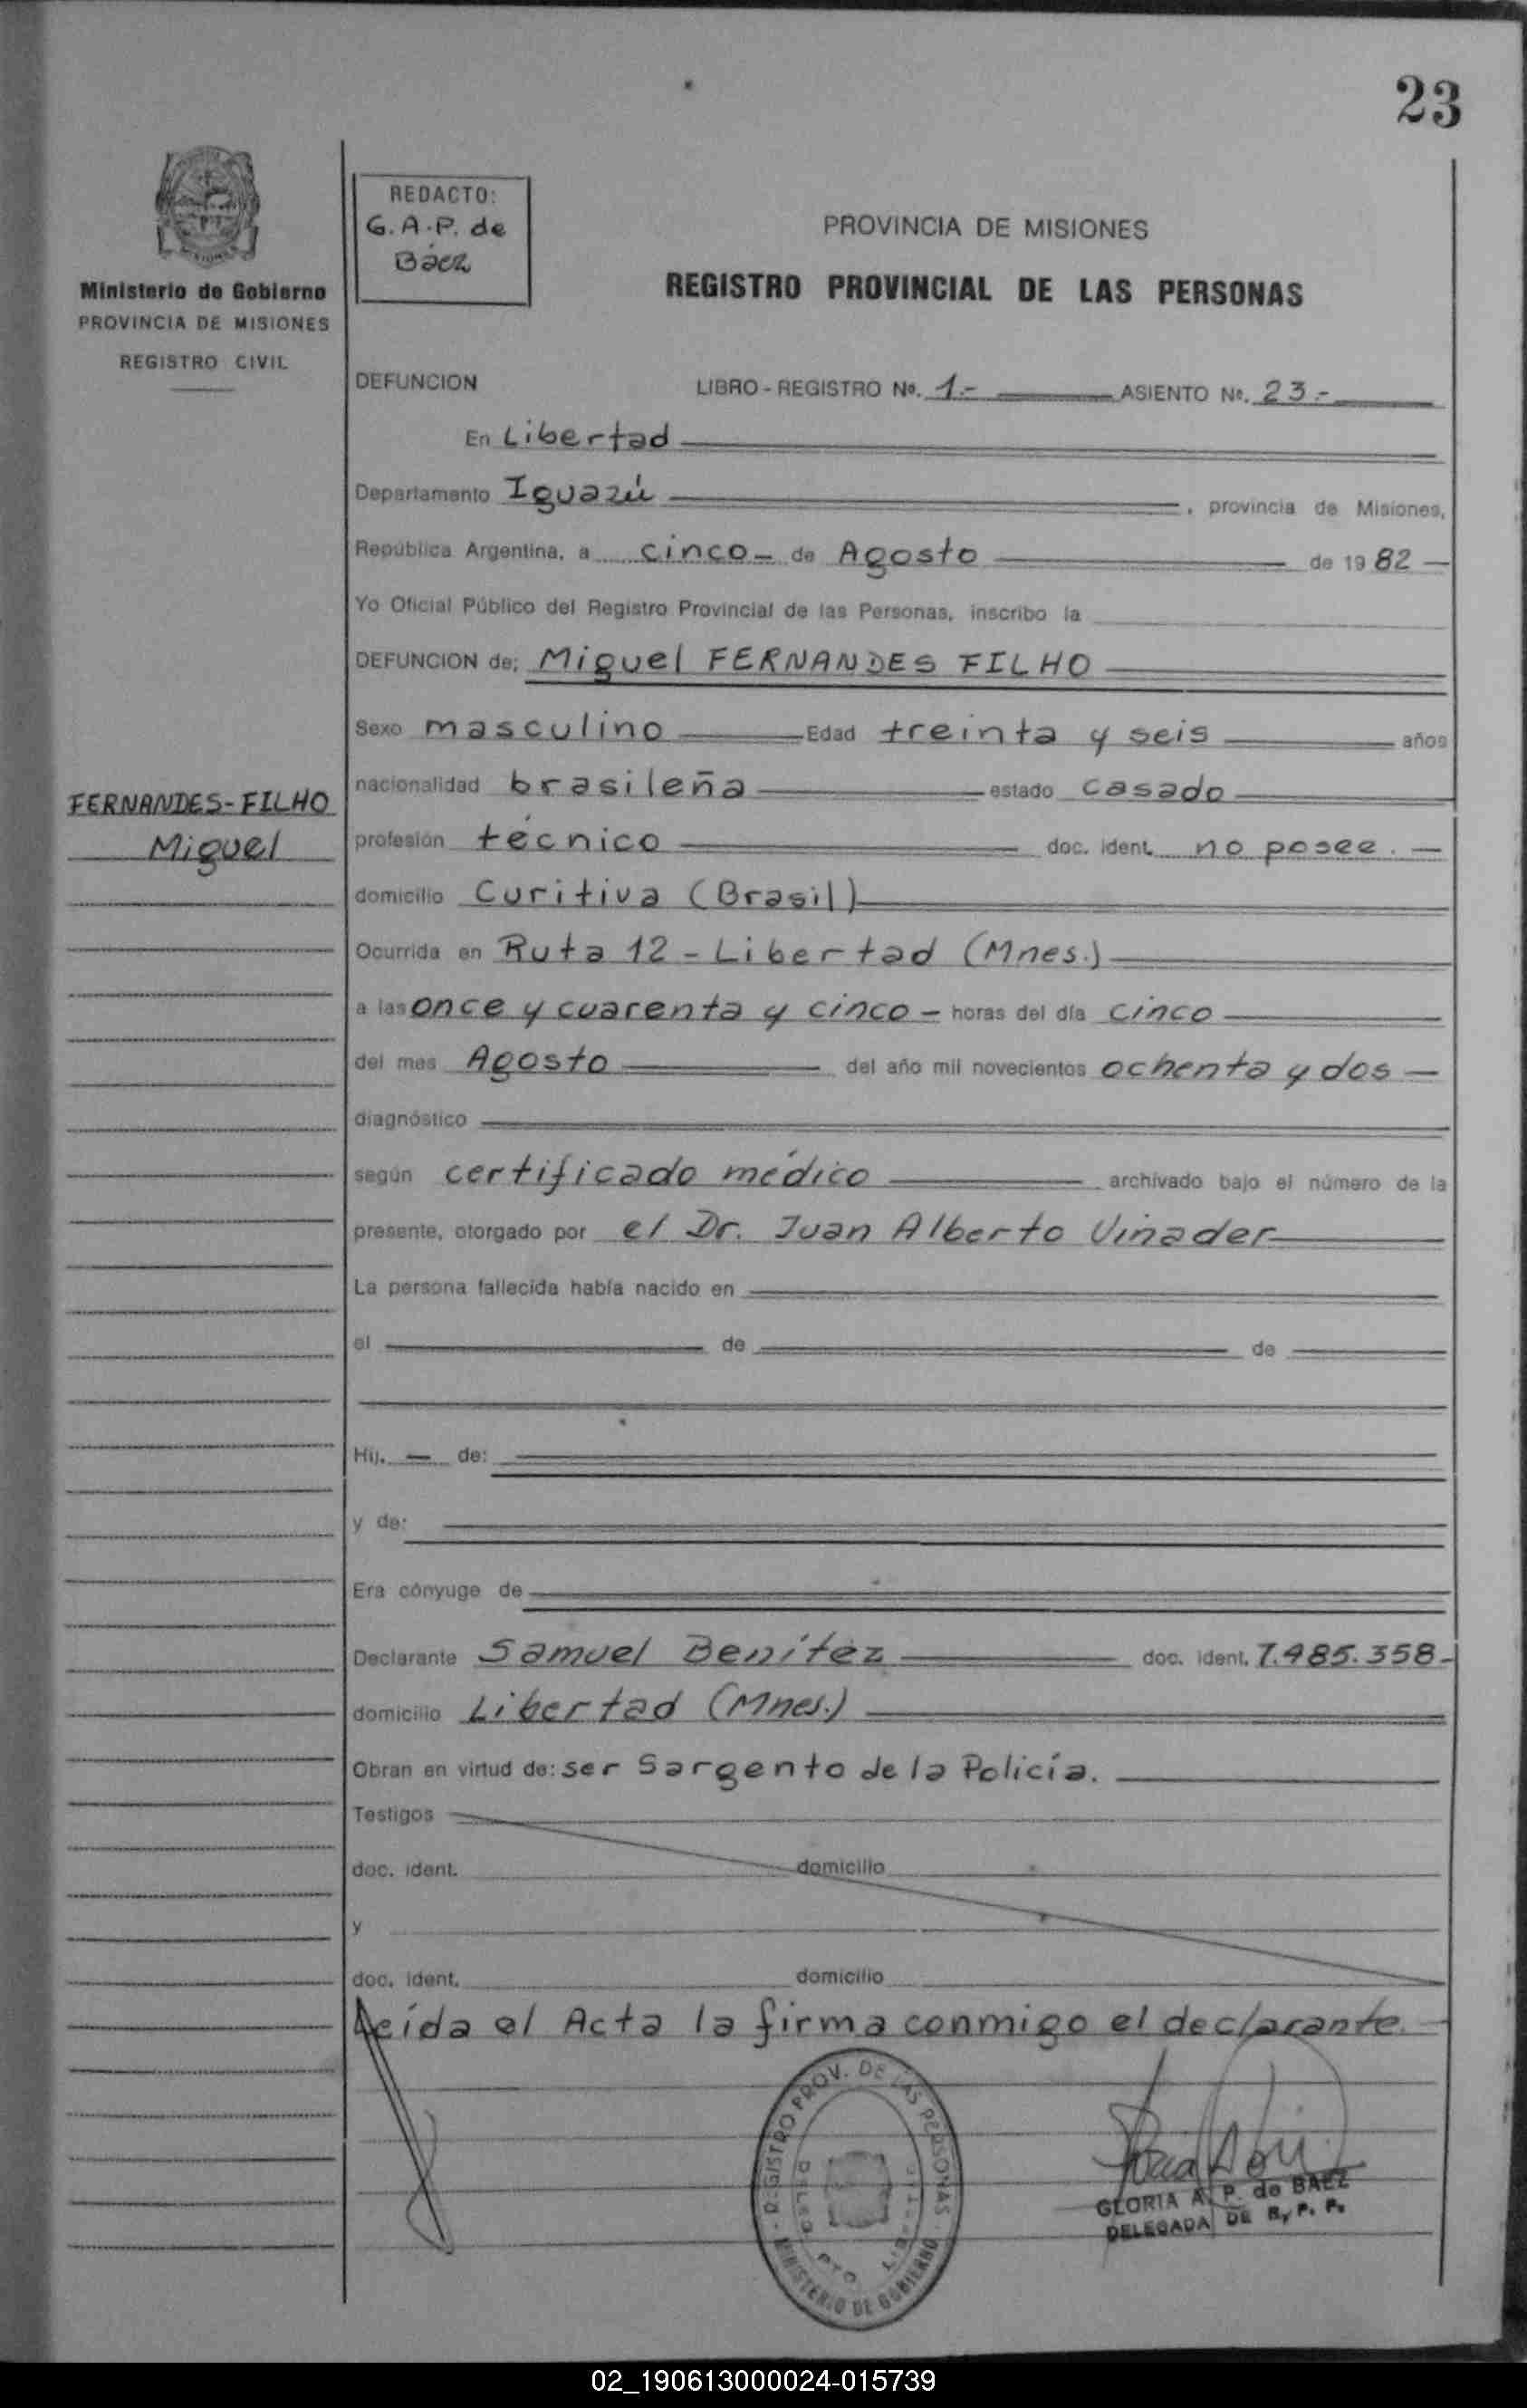 23
REDACTO:
G.A.P. de
Báez
Ministerio de Gobierno
PROVINCIA DE MISIONES
REGISTRO CIVIL
PROVINCIA DE MISIONES
REGISTRO PROVINCIAL DE LAS PERSONAS
DEFUNCION LIBRO - REGISTRO Nº. 1.- ASIENTO Nº. 23.-
En Libertad
Departamento Iguazú , provincia de Misiones,
República Argentina, a cinco - de Agosto de 1982 -
Yo Oficial Público del Registro Provincial de las Personas, inscribo la
DEFUNCION de; Miguel FERNANDES FILHO
Sexo masculino Edad treinta y seis años
FERNANDES-FILHO
Miguel
nacionalidad brasileña estado casado
profesión técnico doc. ident. no posee. -
domicilio Curitiva (Brasil)
Ocurrida en Ruta 12 - Libertad (Mnes.)
a las once y cuarenta y cinco - horas del día cinco
del mes Agosto del año mil novecientos ochenta y dos -
diagnóstico
según certificado médico archivado bajo el número de la
presente, otorgado por el Dr. Juan Alberto Viñader
La persona fallecida había nacido en
el de de
Hij. - de:
y de:
Era cónyuge de
Declarante Samuel Benítez doc. ident. 7.485.358-
domicilio Libertad (Mnes.)
Obran en virtud de: ser Sargento de la Policía.
Testigos
doc. ident. domicilio
y
doc. ident. domicilio
Leída el Acta la firma conmigo el declarante.
REGISTRO PROV. DE LAS PERSONAS
MINISTERIO DE GOBIERNO
GLORIA A. P. de BAEZ
DELEGADA DE R. P. P.
02_190613000024-015739